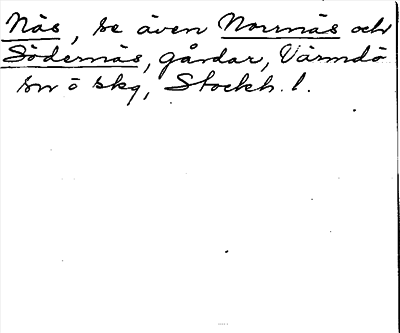 Näs, se även Norrnäs och
Södernäs, gårdar, Värmdö
sn ö skg, Stockh. l.